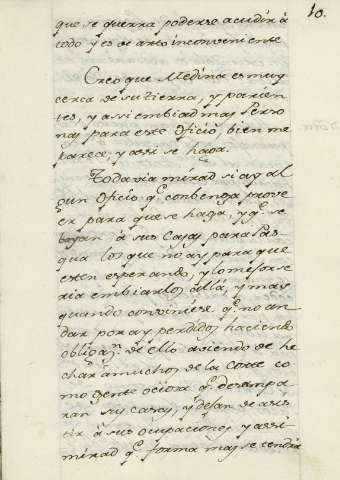 10.
que se querra poderse acudir à
todo y es de arto inconveniente
Creo que Medina es muy
cerca de su tierra, y parien-
tes, y assi embiad mas Perso
nas para este Oficio, bien me
parece, y assi se haga.
Todavia mirad si ay al
gun Oficio q.e conbenga prove
er para que se haga, y q.e se
bayan à sus casas para Pas-
qua los que no ay para que
esten esperando, y lo mejor se
ria embiarlos allà, y mas
quando conviniese q.e no an
dar por ay perdidos haciendo
obligaz.n de ello aviendo de he
char à muchos de la Corte co
mo gente ociosa q.e desampa
ran sus casas, y dejan de asis
tir à sus ocupaciones y assi
mirad q.e forma mas se tendrà